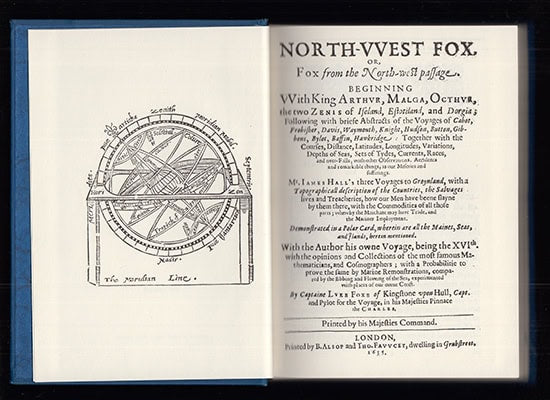 Zenith
The Meridian Line.
Nadir
NORTH-VVEST FOX,
OR,
Fox from the North-west passage.
BEGINNING
VVith King ARTHVR, MALGA, OCTHVR,
the two ZENIS of Iseland, Estotiland, and Dorgia;
Following with briefe Abstracts of the Voyages of Cabot,
Frobisher, Davis, Waymouth, Knight, Hudson, Button, Gib-
bons, Bylot, Baffin, Hawkridge: Together with the
Courses, Distance, Latitudes, Longitudes, Variations,
Depths of Seas, Sets of Tydes, Currents, Races,
and over-Falls, with other Observations, Accidents
and remarkable things, as our Miseries and
sufferings.
Mr. IAMES HALL's three Voyages to Groynland, with a
Topographicall description of the Countries, the Salvages
lives and Treacheries, how our Men have beene slayne
by them there, with the Commodities of all those
parts; whereby the Marchant may have Trade, and
the Mariner Imployment.
Demonstrated in a Polar Card, wherein are all the Maines, Seas,
and Ilands, herein mentioned.
With the Author his owne Voyage, being the XVIth.
with the opinions and Collections of the most famous Ma-
thematicians, and Cosmographers; with a Probabilitie to
prove the same by Marine Remonstrations, compa-
red by the Ebbing and Flowing of the Sea, experimented
with places of our owne Coast.
By Captaine LVKE FOXE of Kingstone vpon Hull, Capt.
and Pylot for the Voyage, in his Majesties Pinnace
the CHARLES.
Printed by his Majesties Command.
LONDON,
Printed by B. ALSOP and THO. FAVVCET, dwelling in Grubstreet.
1635.